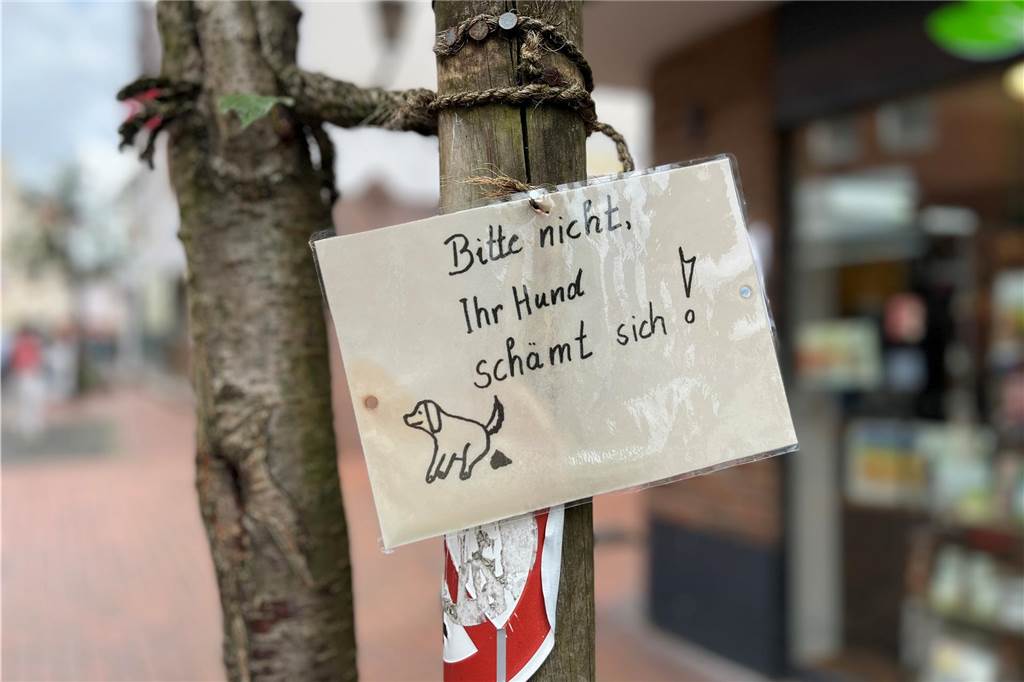 Bitte nicht,
Ihr Hund
schämt sich!